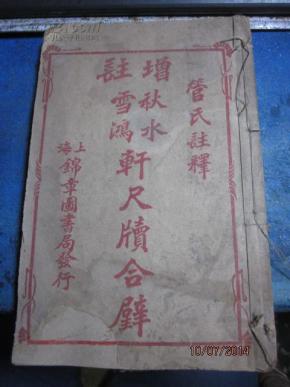 管氏註釋
增註
秋水
雪鴻
軒尺牘合璧
上海
錦章圖書局發行
10/07/2014